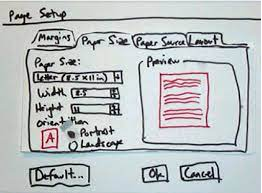 Page Setup
Margins Paper Size Paper Source Layout
Paper Size:
Letter (8.5 x 11 in)
Width 8.5
Height 11
Orientation
A
Portrait
Landscape
Preview
Default... Ok Cancel